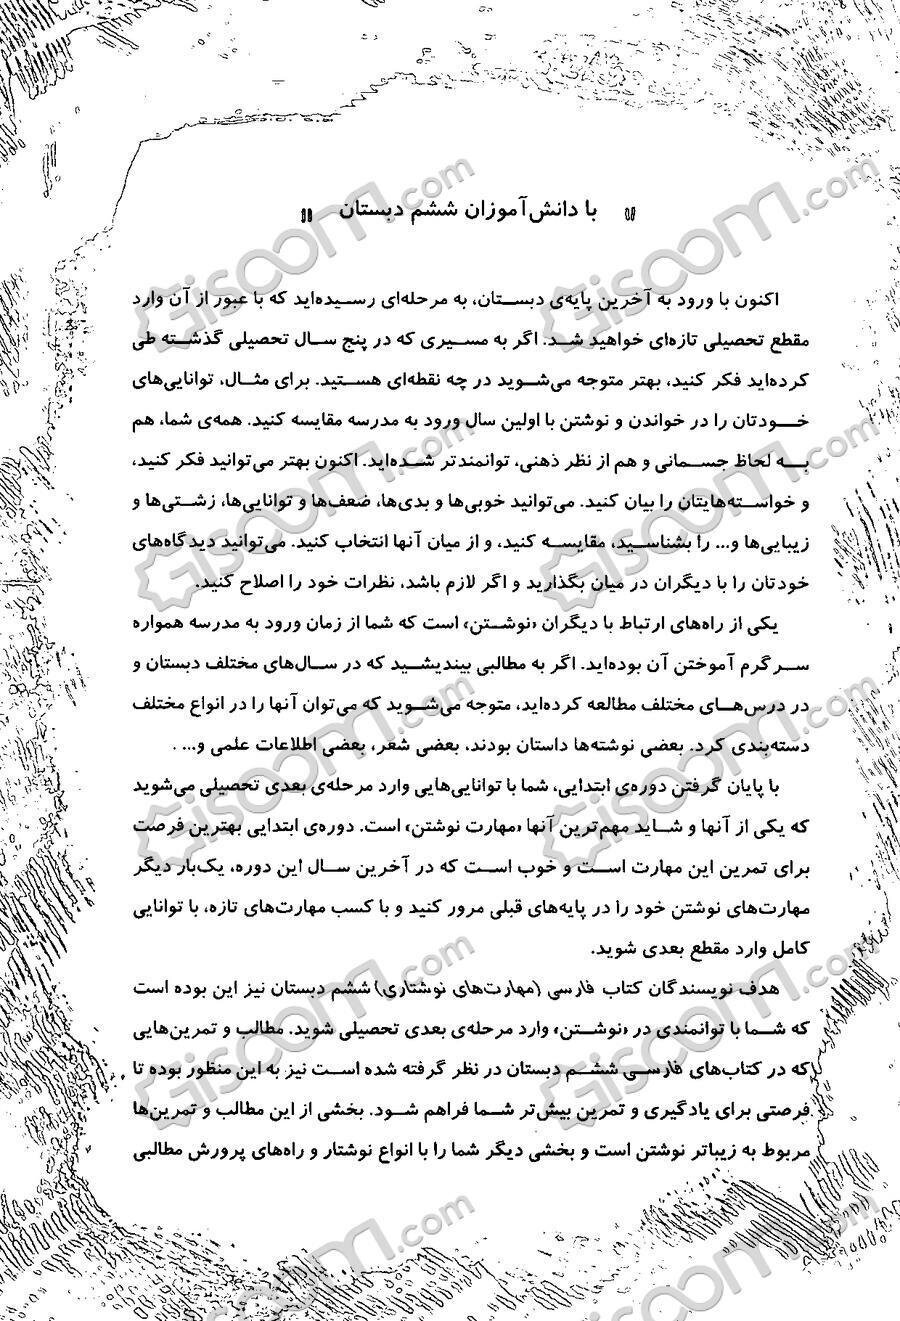 با دانش‌آموزان ششم دبستان
اکنون با ورود به آخرین پایه‌ی دبستان، به مرحله‌ای رسیده‌اید که با عبور از آن وارد
مقطع تحصیلی تازه‌ای خواهید شد. اگر به مسیری که در پنج سال تحصیلی گذشته طی
کرده‌اید فکر کنید، بهتر متوجه می‌شوید در چه نقطه‌ای هستید. برای مثال، توانایی‌های
خودتان را در خواندن و نوشتن با اولین سال ورود به مدرسه مقایسه کنید. همه‌ی شما، هم
به لحاظ جسمانی و هم از نظر ذهنی، توانمندتر شده‌اید. اکنون بهتر می‌توانید فکر کنید،
و خواسته‌هایتان را بیان کنید. می‌توانید خوبی‌ها و بدی‌ها، ضعف‌ها و توانایی‌ها، زشتی‌ها و
زیبایی‌ها و... را بشناسید، مقایسه کنید، و از میان آنها انتخاب کنید. می‌توانید دیدگاه‌های
خودتان را با دیگران در میان بگذارید و اگر لازم باشد، نظرات خود را اصلاح کنید.
یکی از راه‌های ارتباط با دیگران «نوشتن» است که شما از زمان ورود به مدرسه همواره
سرگرم آموختن آن بوده‌اید. اگر به مطالبی بیندیشید که در سال‌های مختلف دبستان و
در درس‌های مختلف مطالعه کرده‌اید، متوجه می‌شوید که می‌توان آنها را در انواع مختلف
دسته‌بندی کرد. بعضی نوشته‌ها داستان بودند، بعضی شعر، بعضی اطلاعات علمی و... .
با پایان گرفتن دوره‌ی ابتدایی، شما با توانایی‌هایی وارد مرحله‌ی بعدی تحصیلی می‌شوید
که یکی از آنها و شاید مهم‌ترین آنها «مهارت نوشتن» است. دوره‌ی ابتدایی بهترین فرصت
برای تمرین این مهارت است و خوب است که در آخرین سال این دوره، یک‌بار دیگر
مهارت‌های نوشتن خود را در پایه‌های قبلی مرور کنید و با کسب مهارت‌های تازه، با توانایی
کامل وارد مقطع بعدی شوید.
هدف نویسندگان کتاب فارسی (مهارت‌های نوشتاری) ششم دبستان نیز این بوده است
که شما با توانمندی در «نوشتن» وارد مرحله‌ی بعدی تحصیلی شوید. مطالب و تمرین‌هایی
که در کتاب‌های فارسی ششم دبستان در نظر گرفته شده است نیز به این منظور بوده تا
فرصتی برای یادگیری و تمرین بیش‌تر شما فراهم شود. بخشی از این مطالب و تمرین‌ها
مربوط به زیباتر نوشتن است و بخشی دیگر شما را با انواع نوشتار و راه‌های پرورش مطالبی
Gisoom.com
Gisoom.com
Gisoom.com
Gisoom.com
Gisoom.com
Gisoom.com
Gisoom.com
Gisoom.com
Gisoom.com
Gisoom.com